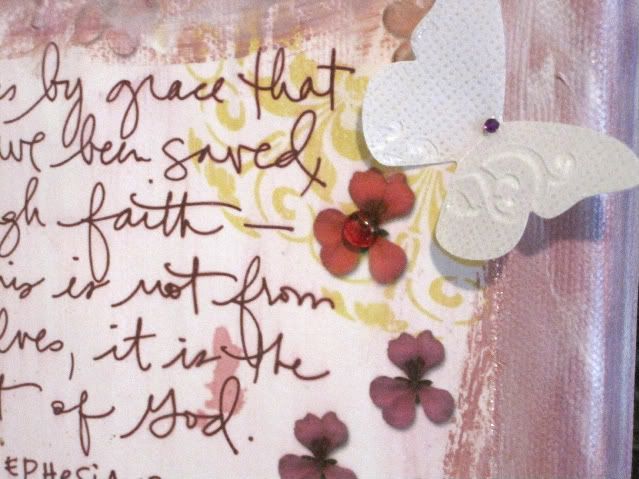 s by grace that
ve been saved,
gh faith —
is is not from
lves, it is the
t of God.
EPHESIA